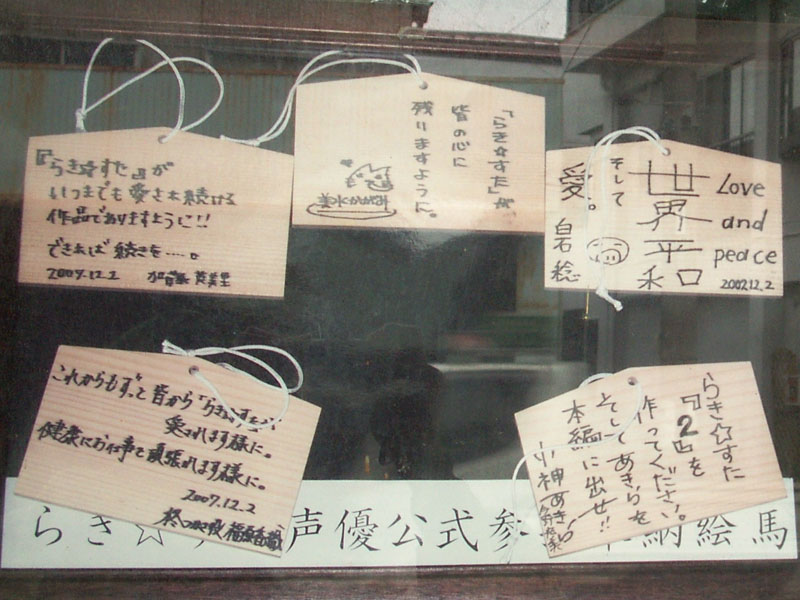 『らき☆すた』が
いつまでも愛され続ける
作品でありますように!!
できれば続きを……。
2007.12.2 加藤英美里
「らき☆すた」が、
皆の心に
残りますように。
美水かがみ
Love
and
peace
2007.12.2
世界平和
そして
愛。
白石稔
これからもずっと皆から「らき☆すた」が
愛されます様に。
健康にお仕事で頑張れます様に。
2007.12.2
柊つかさ役 福原香織
らき☆すた
『2』を
作ってください。
そしてあきらを
本編に出せ!!
小神あきら
らき☆
声優公式参
納絵馬